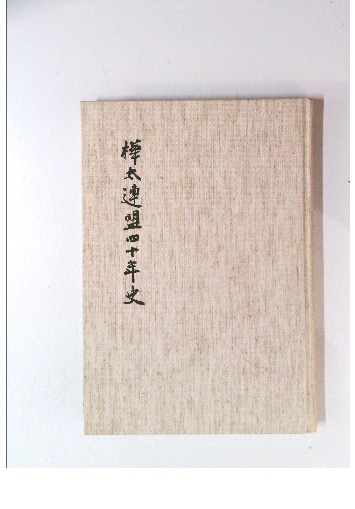 樺太連盟四十年史